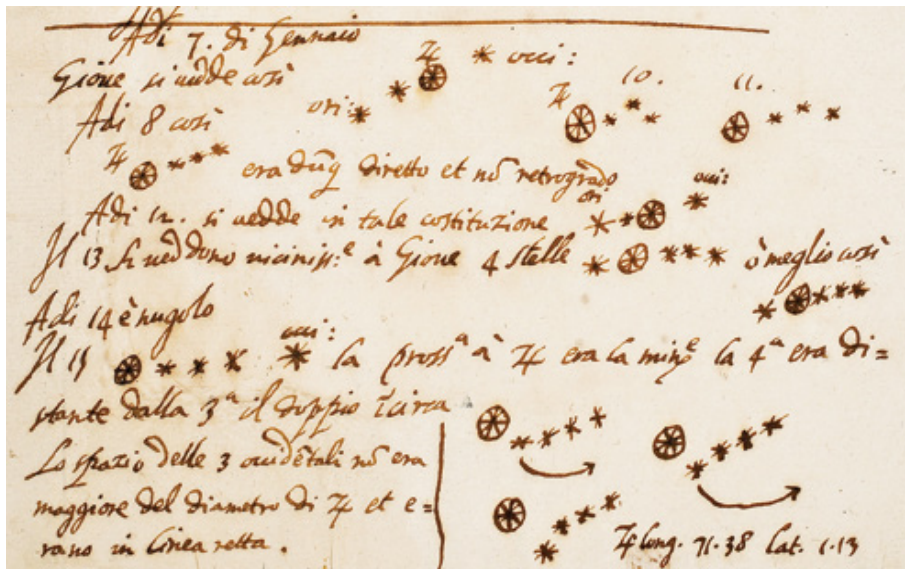 Adi 7. di Gennaio
Gioue si uedde così
ori: ♃ occi:
Adi 8 così
♃ 10. 11.
♃ era dũq diretto et nõ retrogrado
Adi 12. si uedde in tale costituzione ori occi:
Il 13 si ueddono uiciniss:ᵉ à Gioue 4 stelle ò meglio così
Adi 14 è nugolo
Il 15 occi: la prossᵃ à ♃ era la minᵉ la 4ᵃ era di=
stante dalla 3ᵃ il doppio circa
Lo spazio delle 3 ouidẽtali nõ era
maggiore del diametro di ♃ et e=
rano in linea retta.
♃ long. 71.38 lat. 1.13